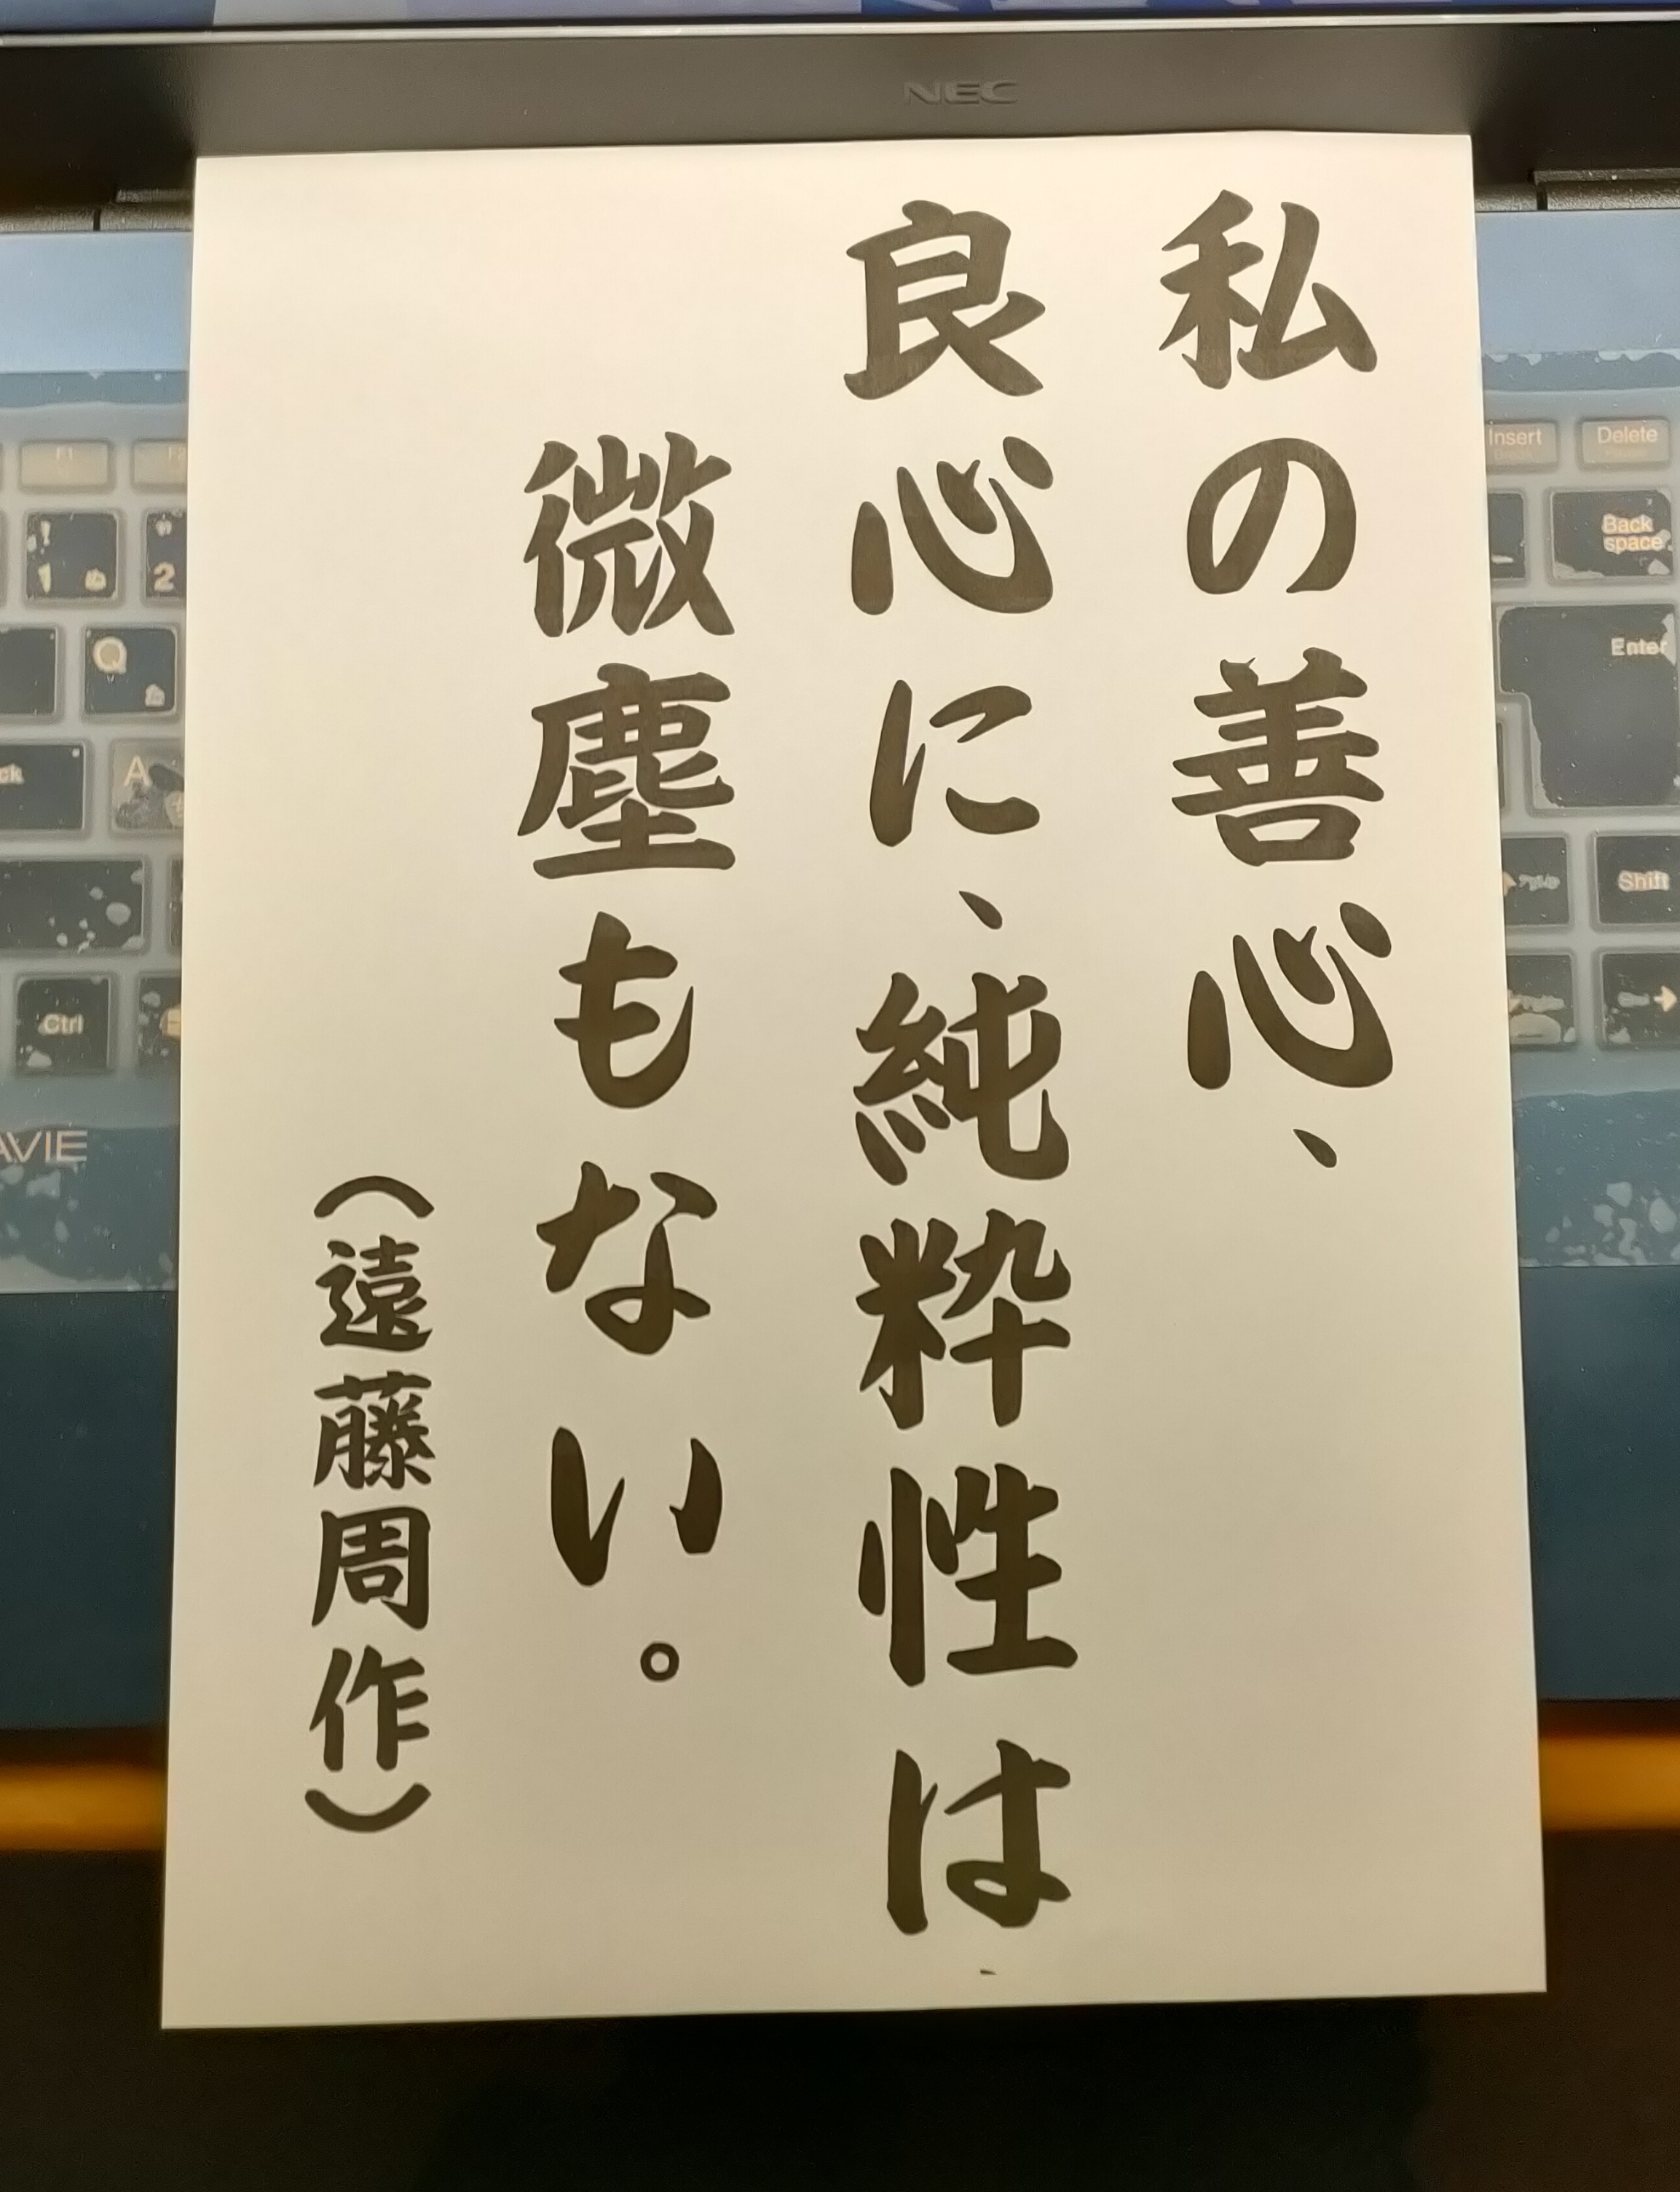 NEC
私の善心、
良心に、純粋性は
微塵もない。
（遠藤周作）
F1
Insert
Delete
!
1
2
Back
space
Q
Enter
A
Shift
Ctrl
AVIE